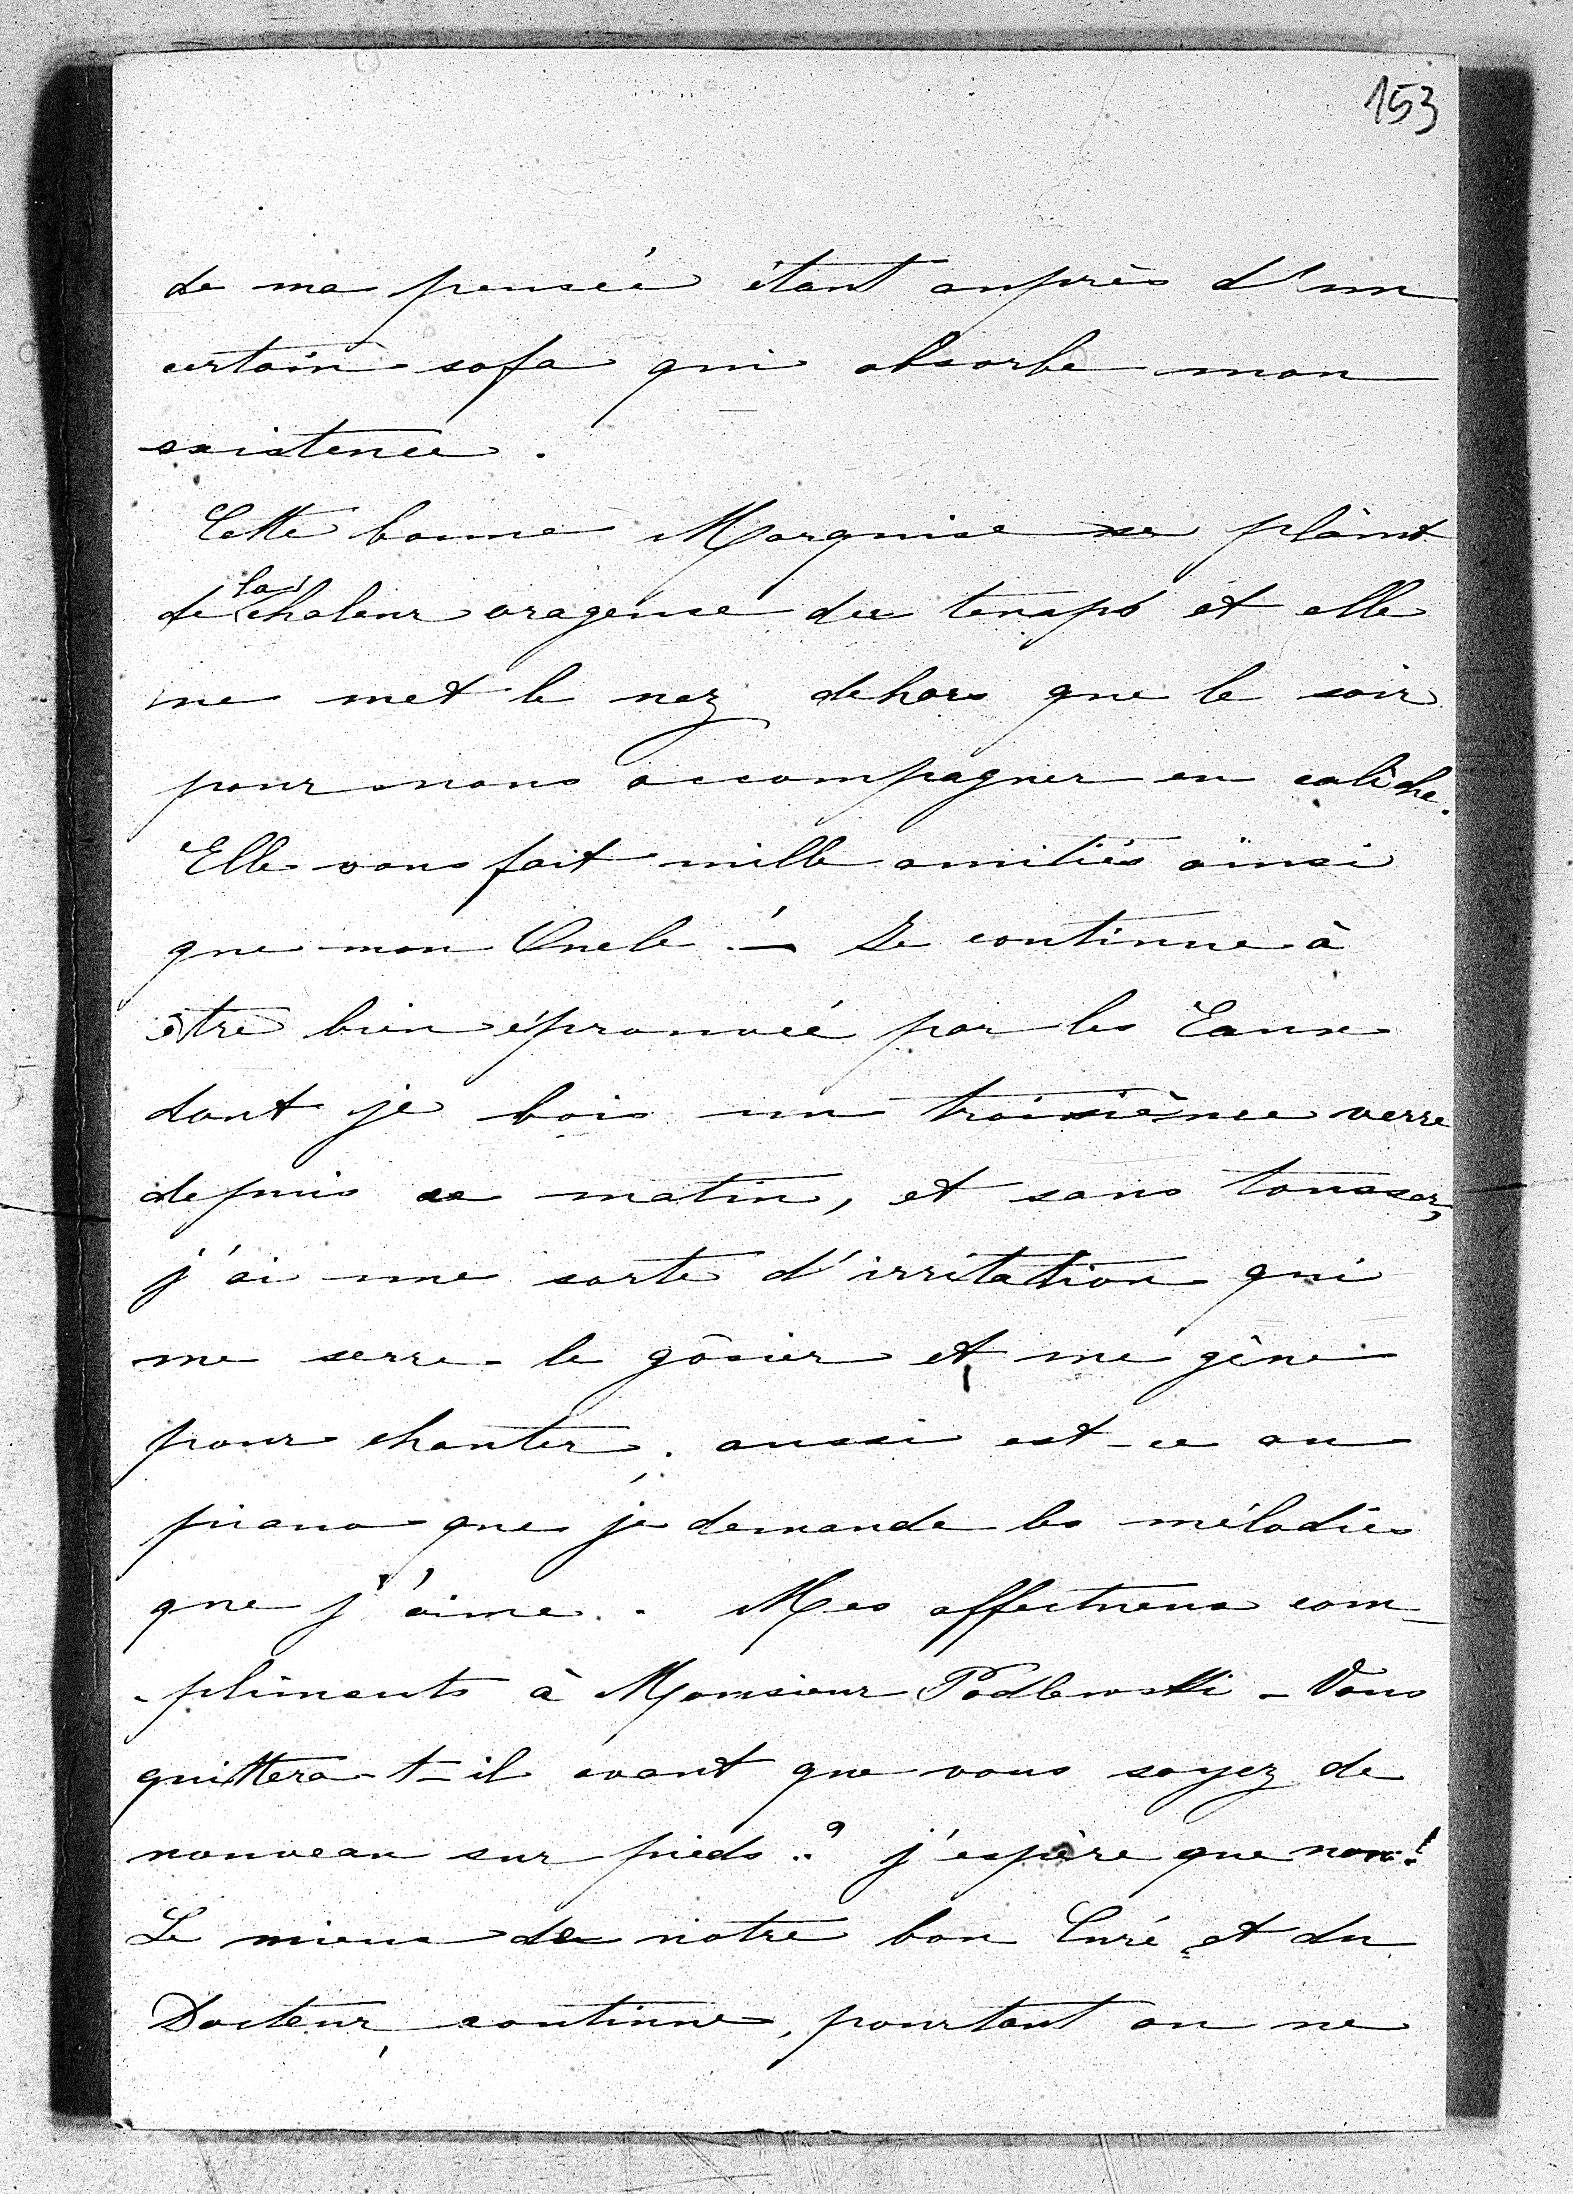 153
de ma pensée étant auprès d'un
certain sofa qui absorbe mon
existence.
Cette bonne Marquise se plaint
de la chaleur orageuse du temps et elle
ne met le nez dehors que le soir
pour nous accompagner en calèche.
Elle vous fait mille amitiés ainsi
que mon Oncle. — Je continue à
être bien éprouvée par les Eaux
dont je bois un troisième verre
depuis ce matin, et sans tousser,
j'ai une sorte d'irritation qui
me serre le gôsier et me gêne
pour chanter. aussi est-ce au
piano que je demande les mélodies
que j'aime. - Mes affectueux com-
-pliments à Monsieur Podlewski - Vous
quittera-t-il avant que vous soyez de
nouveau sur pieds? j'espère que non!
Le mieux de notre bon Curé et du
Docteur, continue, pourtant on ne